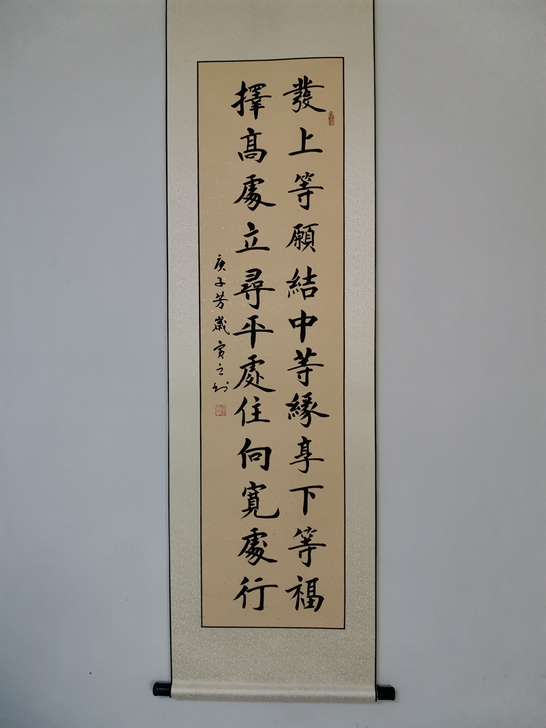 發上等願結中等緣享下等福
擇高處立尋平處住向寬處行
庚子芳歲